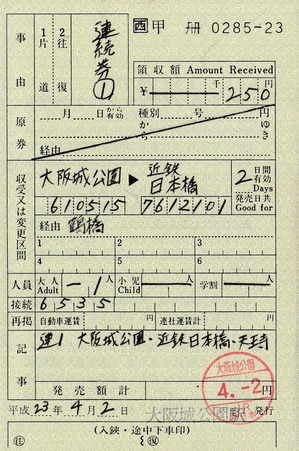 西 甲 册 0285-23
事由
1片道
2往復
連続券①
領収額 Amount Received
¥ 千 250 円
原券
月 日から有効 種別 号
から ゆき
経由
収受又は変更区間
大阪城公園 ▶ 近鉄日本橋
2 日間有効 Days
発売日共 Good for
610515 7612101
経由 鶴橋
1 2 3
4 5 6
人員 大人 Adult 1人 小児 Child 人 学割 人
接続 6535
再掲 自動車運賃 円 連社運賃計 円
記事
連1 大阪城公園・近鉄日本橋・天王寺
発売額計 円
平成23年4月2日 大阪城公園駅 発行
大阪城公園
4.-2
(入鋏・途中下車印)